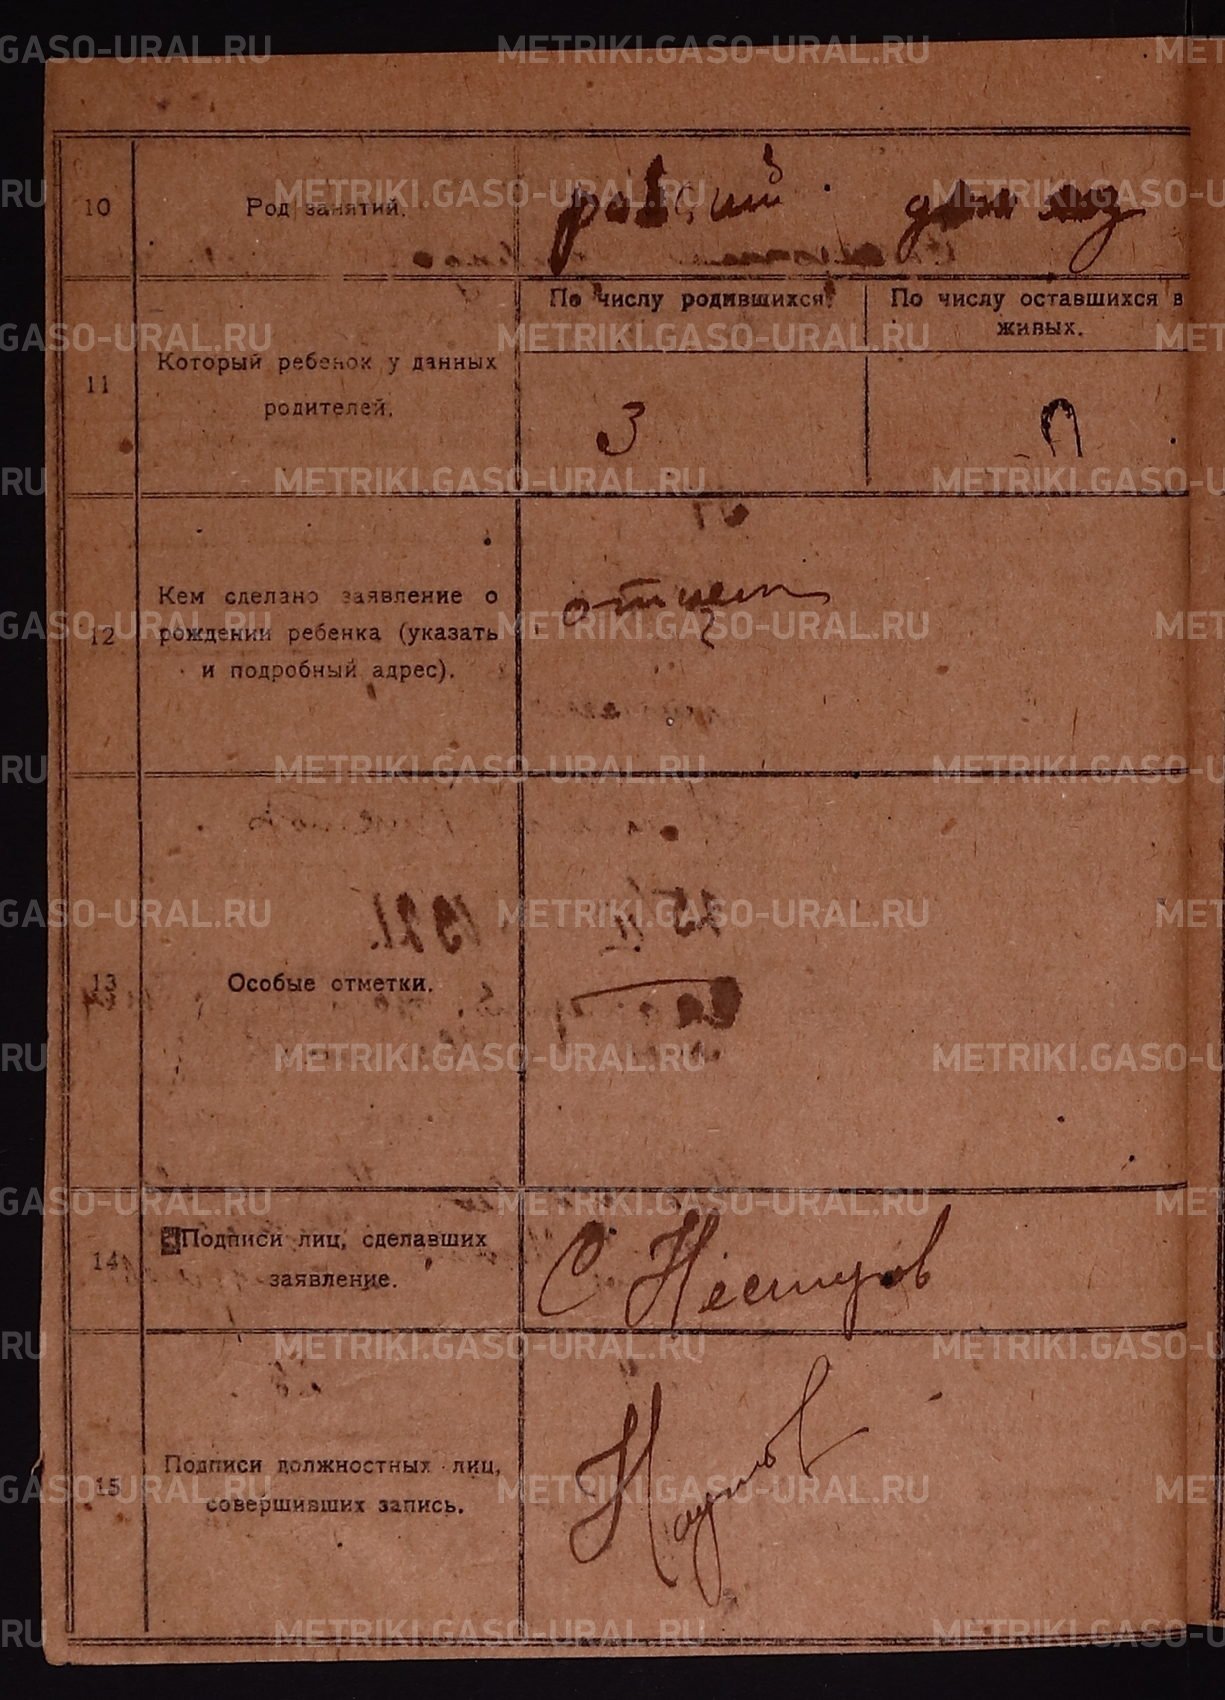 10 Род занятий. рабочий дом хоз
11 Который ребенок у данных родителей.
По числу родившихся.
По числу оставшихся в живых.
3
12 Кем сделано заявление о
рождении ребенка (указать
и подробный адрес).
отцем
13 Особые отметки.
14 Подписи лиц, сделавших
заявление.
С Нестеров
15 Подписи должностных лиц,
совершивших запись.
METRIKI.GASO-URAL.RU